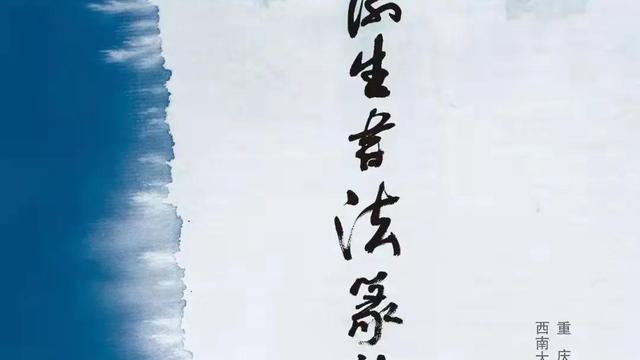 生書法篆
重庆
西南大